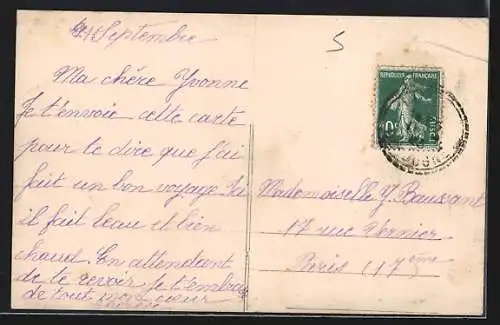 Septembre
Ma chère Yvonne
Je t'envoie cette carte
pour te dire que j'ai
fait un bon voyage. Ici
il fait beau et bien
chaud. En attendant
de te revoir je t'embrasse
de tout mon cœur
5
REPUBLIQUE FRANÇAISE
Mademoiselle Y. Baussant
17 rue Vernier
Paris (17ème)